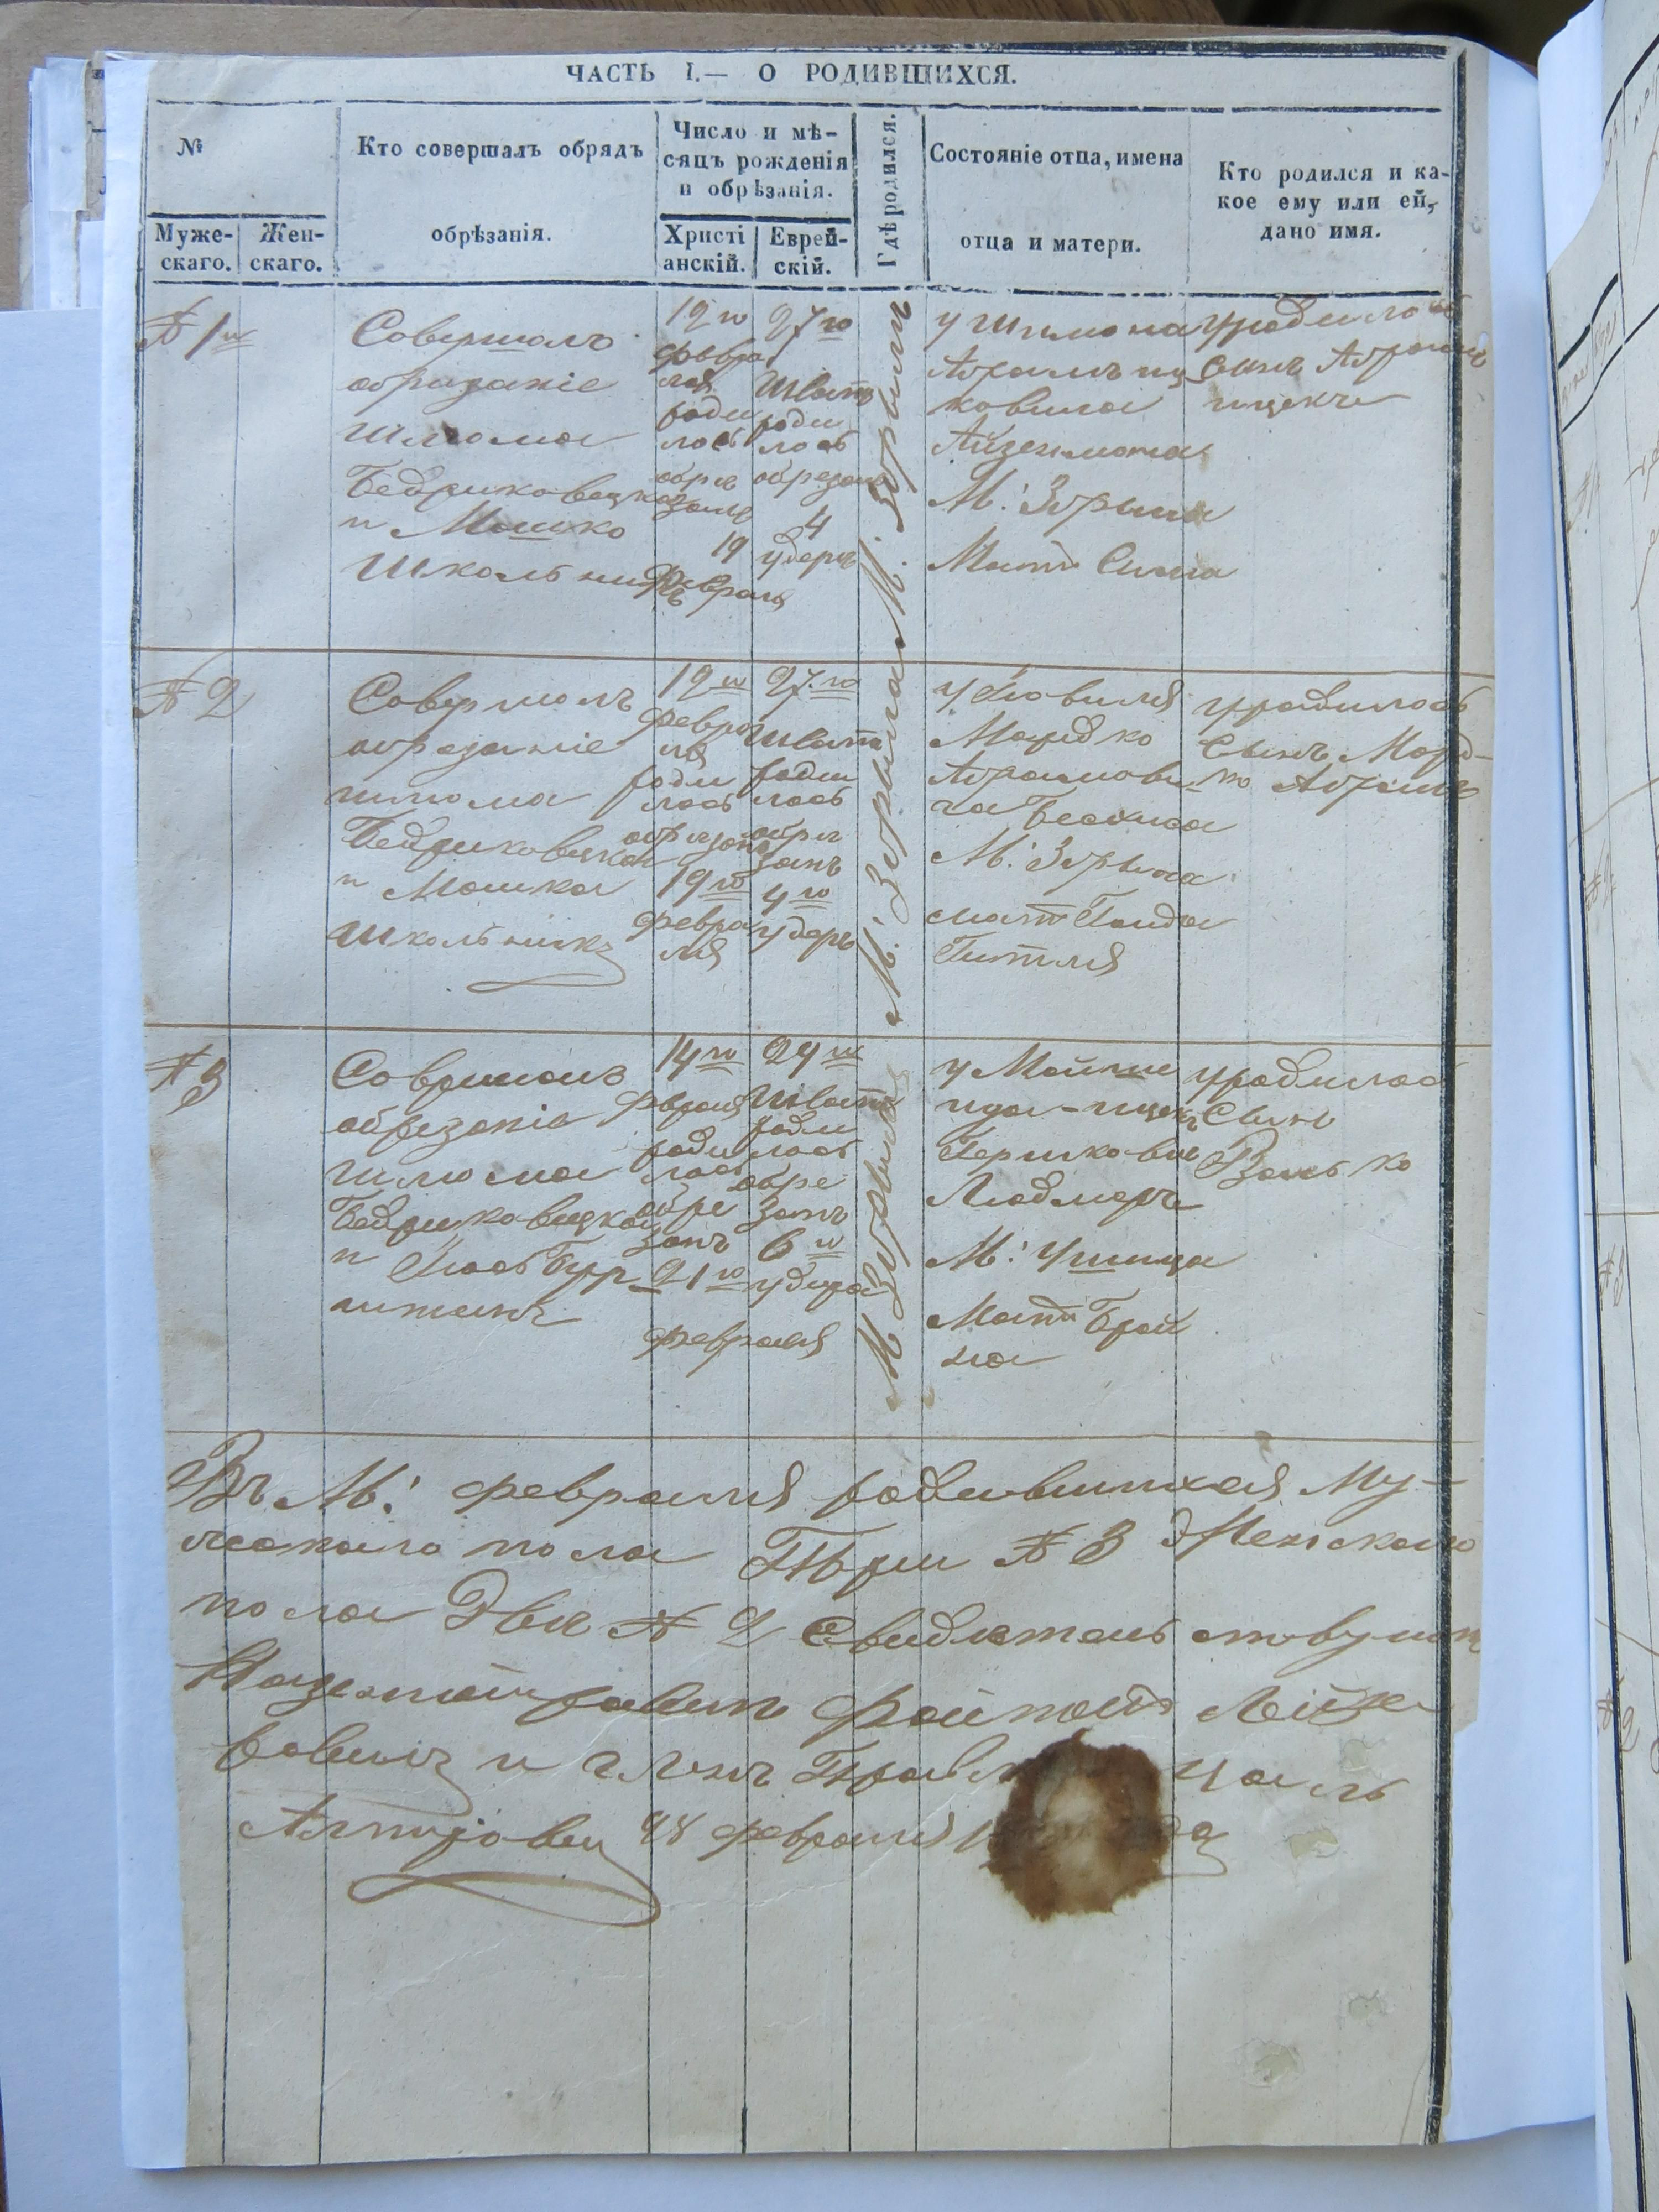 ЧАСТЬ I.— О РОДИВШИХСЯ.
№
Муже-
скаго.
Жен-
скаго.
Кто совершалъ обрядъ
обрѣзанія.
Число и мѣ-
сяцъ рожденія
и обрѣзанія.
Христі
анскій.
Еврей-
скій.
Гдѣ родился.
Состояніе отца, имена
отца и матери.
Кто родился и ка-
кое ему или ей,
дано имя.
№ 1й
Совершалъ
обризаніе
Шлиома
Бедриковецкой
и Мошко
Школьникъ
12го
февра
ля
роди
лось
обре
занъ
19
февраля
27го
Шватъ
роди
лось
обрезанъ
4
удеръ
М: Збрыжъ
У Шимона
Абрамъ иц
ковича
Айзенмана
М: Збрыжа
Мать Сима
уродилось
Сынъ Абрамъ
ицекъ
№ 2
Совершалъ
обрезаніе
шлома
Бедриковецкой
и Мошка
Школьникъ
12го
февра
ля
роди
лось
обрезанъ
19го
февра
ля
27го
Швата
роди
лось
обре
занъ
4го
удеръ
М: Збрыжа
Мордко
Абрамови
ча
М: Збрыжа
мать
Гитля
уродилось
Сынъ Морд-
ко Абрамъ
№ 3
Совершалъ
обрезаніе
шлиома
Бедриковецкой
и
14го
февраля
роди
лось
обре
занъ
21го
февраля
29го
Шватъ
роди
лось
обре
занъ
6го
удера
М Збрыжа
У Мойше
ицекъ
Гершкович
Людмеръ
М: Ушица
Мать Брай
на
уродилось
Сынъ
Волько
Въ М: февраля родившихся Му-
жескаго пола Търи № 3 Женскаго
пола Два № 2 Свидѣтельствуют
Казенный равинъ Файвель
вовичъ и членъ Правл
февраля